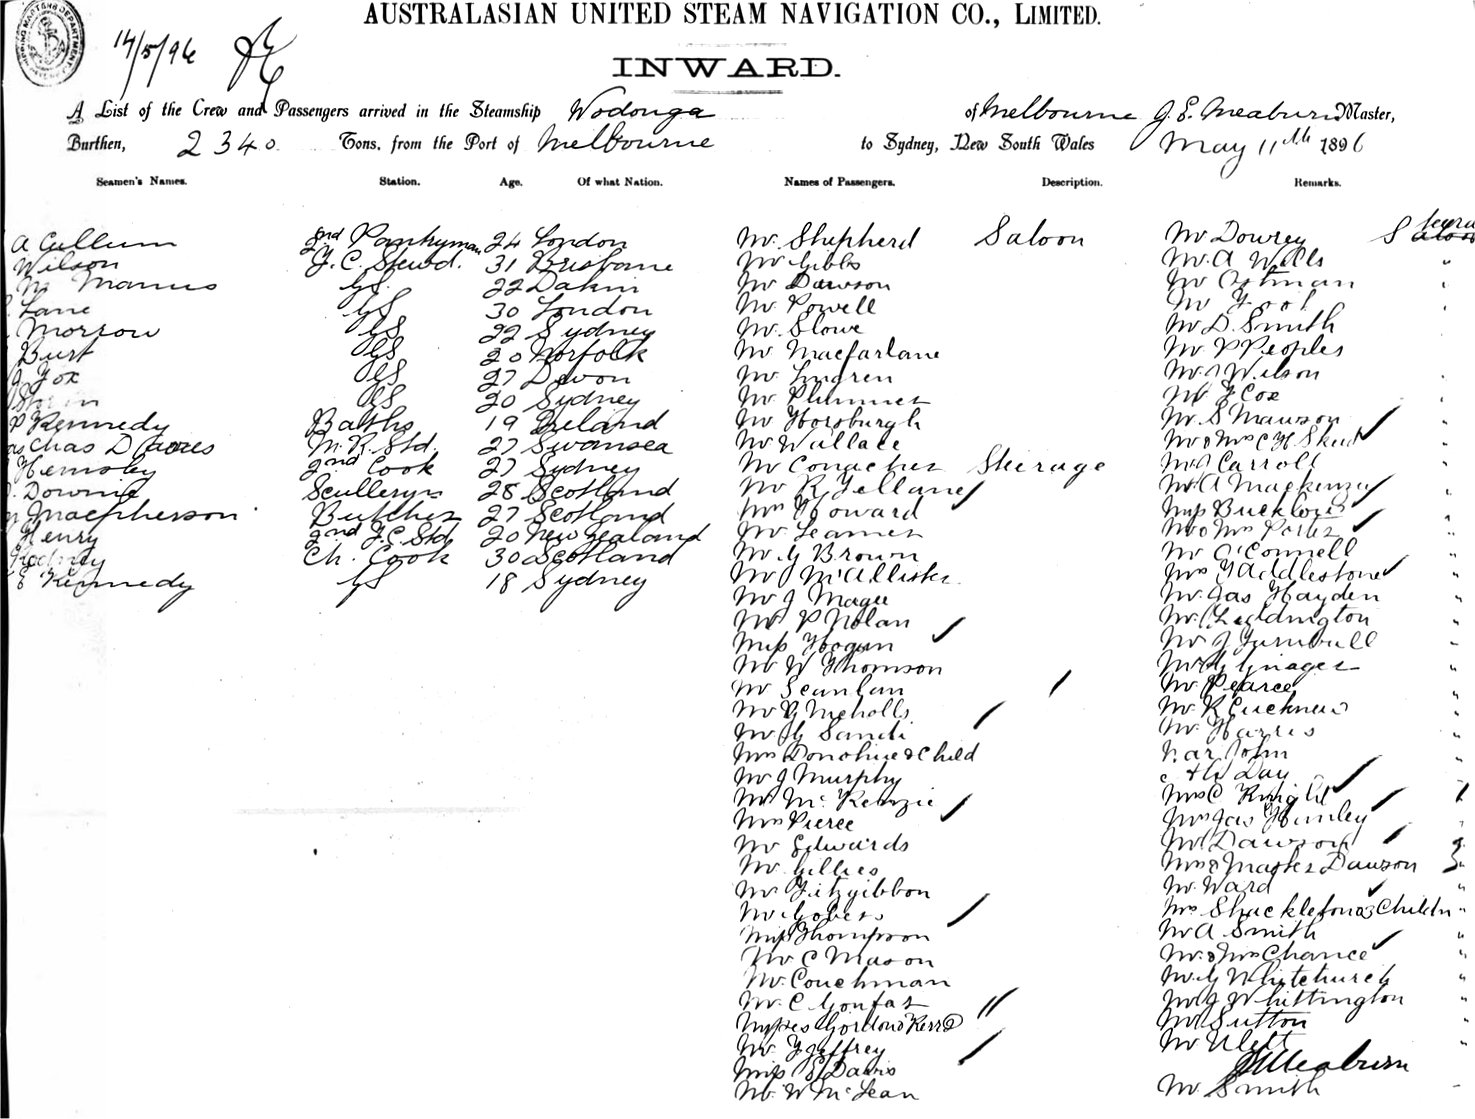 AUSTRALASIAN UNITED STEAM NAVIGATION CO., LIMITED.
14/5/96
INWARD.
A List of the Crew and Passengers arrived in the Steamship Wodonga of Melbourne J. E. Meaburn Master,
Burthen, 2340 Tons, from the Port of Melbourne to Sydney, New South Wales May 11th 1896
Seamen's Names. Station. Age. Of what Nation. Names of Passengers. Description. Remarks.
A Cullum 2nd Pantryman 24 London
Wilson F. C. Stewd. 31 Brisbane
Mc Manus GS 22
Lane GS 30 London
Morrow GS 22 Sydney
Burt GS 20 Norfolk
Fox GS 27 Devon
GS 20 Sydney
P Kennedy Baths 19 Ireland
Chas D M. R. Std. 27 Swansea
Hemsley 2nd Cook 27 Sydney
Downie Scullery 28 Scotland
Macpherson Butcher 27 Scotland
Henry 2nd F. C. Std 20 New Zealand
Ch. Cook 30 Scotland
E Kennedy GS 18 Sydney
Mr Shepherd Saloon
Mr Gibbs
Mr Dawson
Mr Powell
Mr Slowe
Mr Macfarlane
Mr Lingren
Mr Plummer
Mr Horsburgh
Mr Wallace
Mr Conacher Sterage
Mr R Gellane
Mrs Howard
Mr Leamer
Mr G Brown
Mr J McAllister
Mr J Magee
Mr P Nolan
Miss Hogan
Mr W Thomson
Mr Scanlan
Mr G Nicholls
Mr G Sandi
Mrs Donohue & Child
Mr J Murphy
Mr McKenzie
Mrs Pierce
Mr Edwards
Mr Gillies
Mr Fitzgibbon
Mr Gobers
Miss Thompson
Mr C Mason
Mr Couchman
Mr C Gonfat
Misses Gordon & Kerr
Mr F Jeffrey
Miss E Davis
Mr W McLean
Mr Dowrey Saloon
Mr A Wills "
Mr Ostman "
Mr Fool
Mr D. Smith
Mr P Peoples
Mr J Wilson
Mr F Cox
Mr S Mawson
Mr & Mrs C H Skid
Mr J Carroll
Mr A Mackenzie
Miss Bucklow
Mr & Mrs Porter
Mr O'Connell
Mrs Haddlestone
Mr Jas Hayden
Mr C Leddington
Mr J Turnbull
Mr G Ginager
Mr Pearce
Mr R Cuckneu
Mr Harris
John
Day
Mrs C Knight
Mrs Jas Hunley
Mr Dawson
Mrs & Master Dawson
Mr Ward
Mrs Shackleton & 3 Children
Mr A Smith
Mr & Mrs Chance
Mr G Whitchurch
Mr J Whittington
Mr Sutton
Mr Ulett
J E Meaburn
Mr Smith